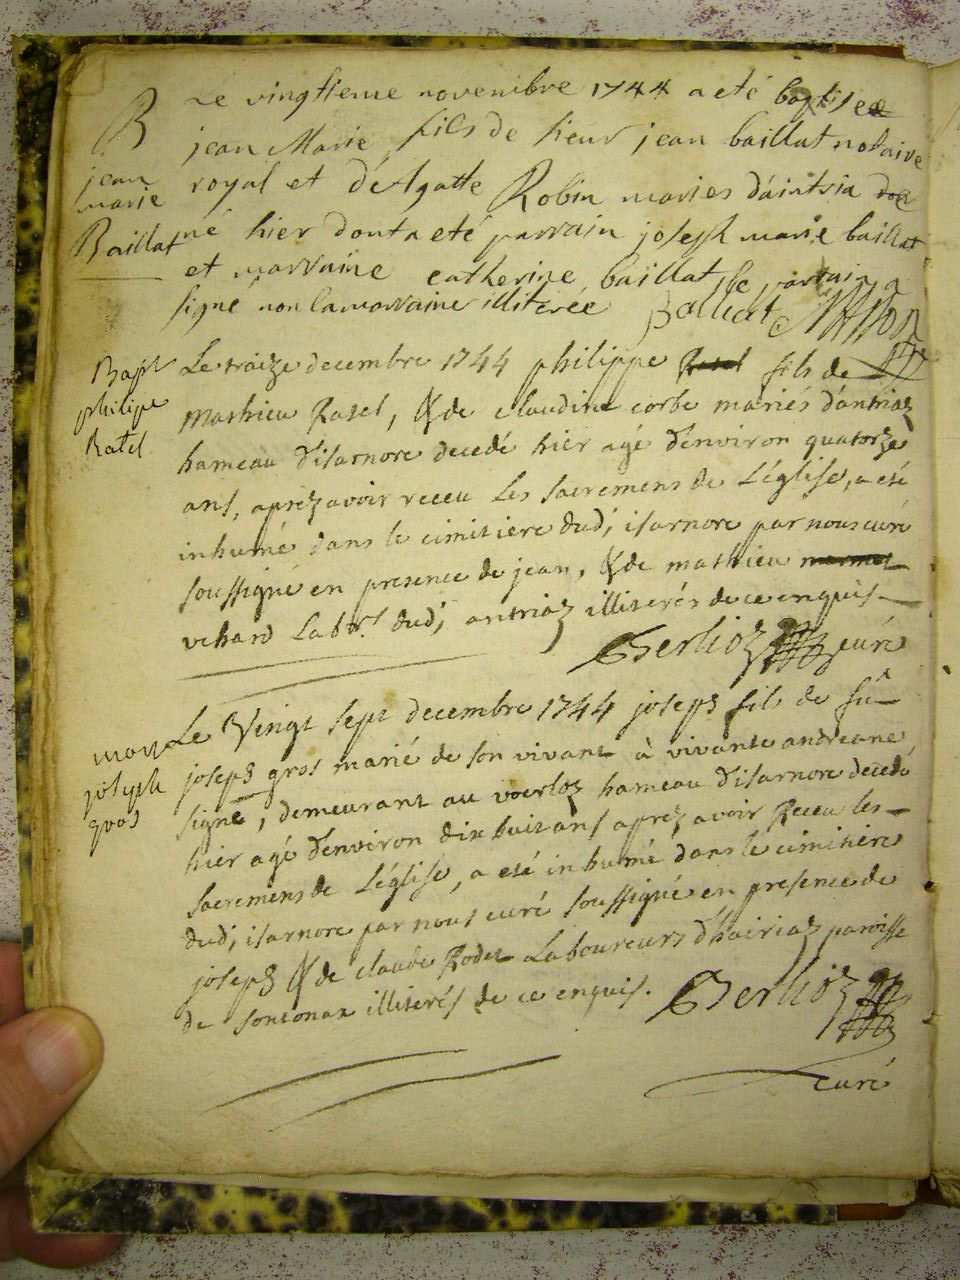 B
jean
marie
Baillat
Le vingtieme novembre 1744 a eté baptisé
jean Marie, fils de sieur jean baillat notaire
royal et de Agatte Robin maries d'aintria
né hier dont a eté parrain joseph marie baillat
et marraine catherine baillat, le parrain a
signé non la marraine illiterée Baillat
Bapt
philipe
Ratel
Le traize decembre 1744 philippe Ratel fils de
Mathieu Ratel, & de claudine corbe mariés d'antriaz
hameau d'isarnore decedé hier agé d'environ quatorze
ans, aprez avoir receu les sacremens de L'église, a eté
inhumé dans le cimitiere dud; isarnore par nous curé
soussigné en presence de jean, & de mathieu
vehard Labrs. dud; antriaz illiterés de ce enquis
Berlioz curé
mort
joseph
gros
Le Vingt sept decembre 1744 joseph fils de fû
joseph gros marié de son vivant à vivante andreane
signe, demeurant au voerloz hameau d'isarnore decedé
hier agé d'environ dix huit ans aprez avoir Receu les
sacremens de L'église, a eté inhumé dans le cimitiere
dud; isarnore par nous curé soussigné en presence de
joseph & de claude Rodet Laboureurs d'hairiaz paroisse
de sontonax illiterés de ce enquis. Berlioz
curé